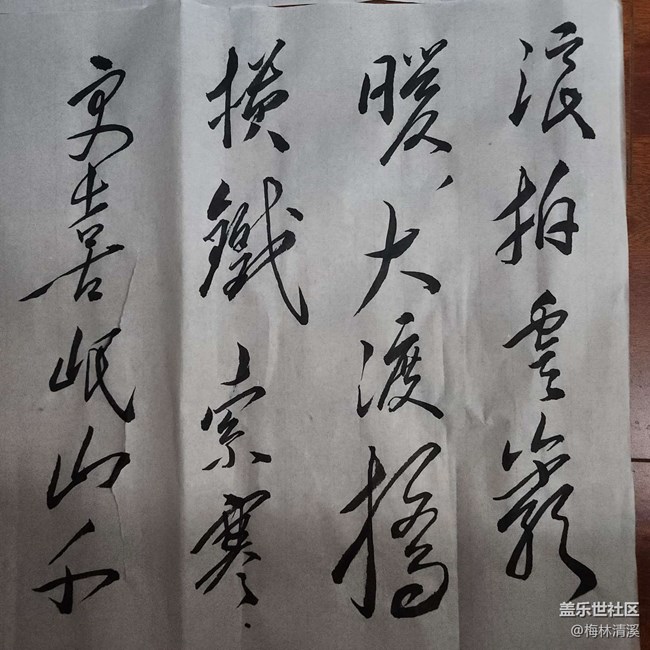 浪拍雲崖
暖，大渡橋
横鐵索寒.
更喜岷山千
盖乐世社区
@梅林清溪